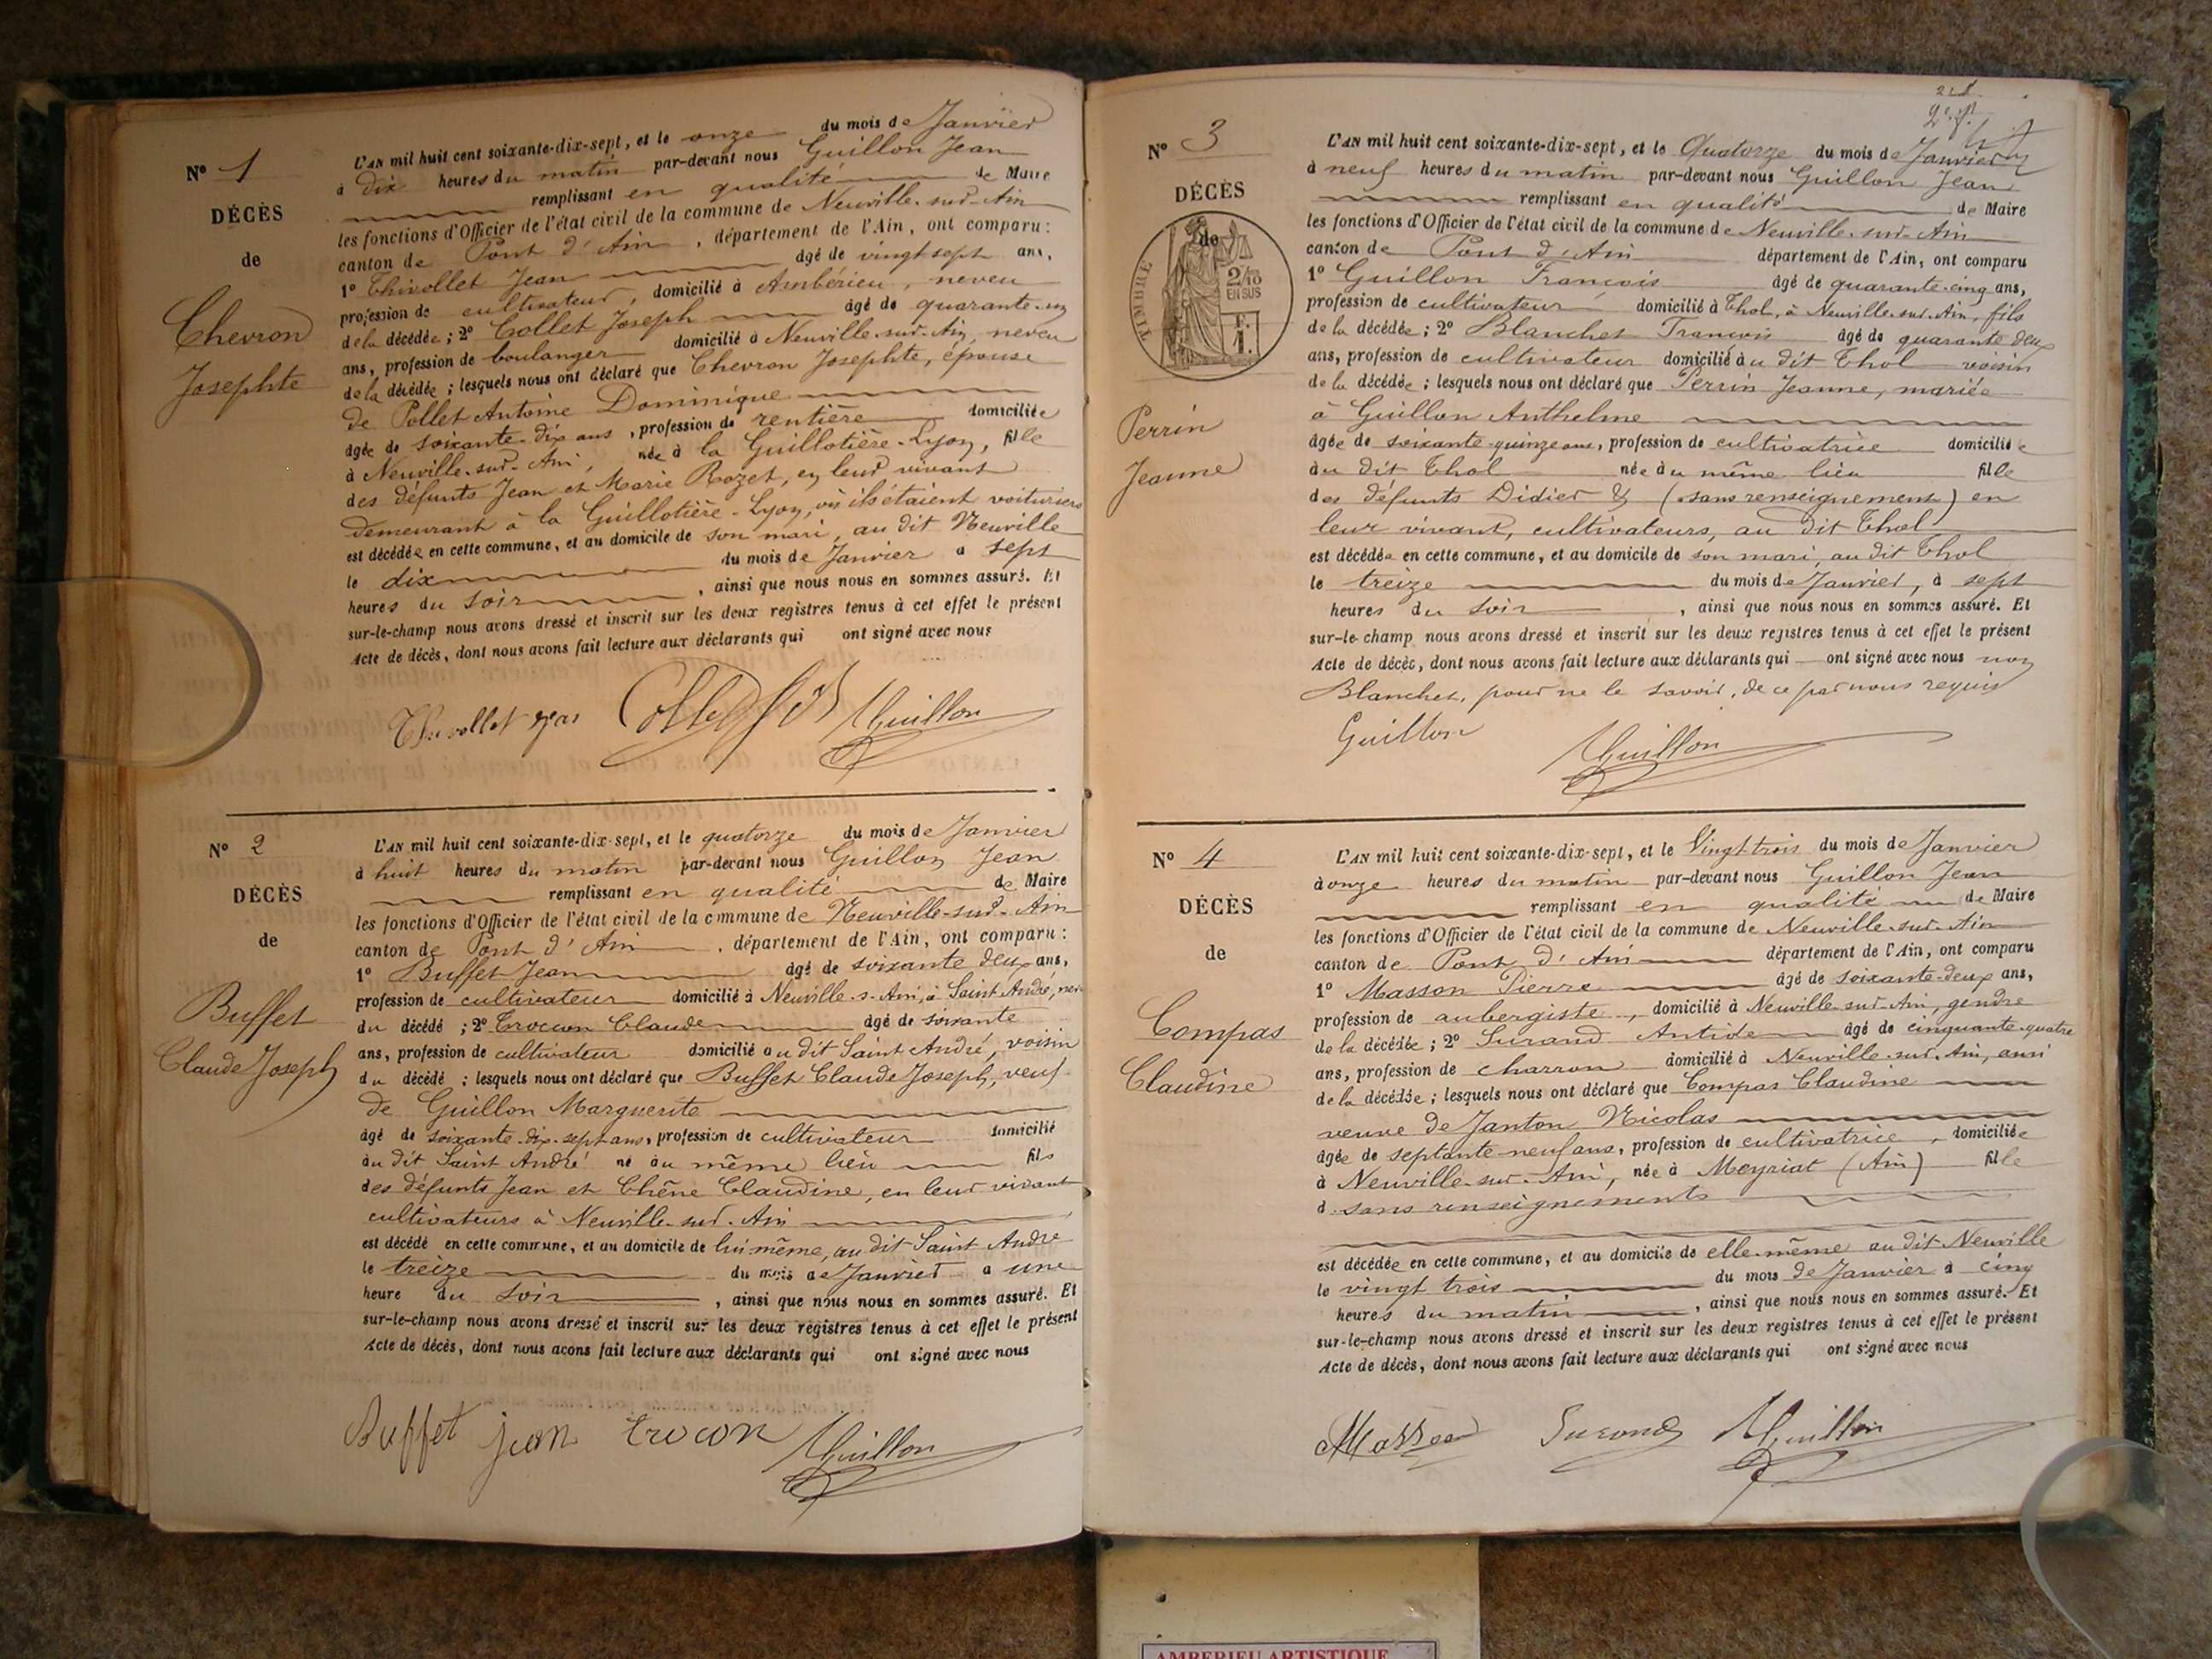 N° 1
DÉCÈS
de
Chevron
Josephte
L'AN mil huit cent soixante-dix-sept, et le onze du mois de Janvier
à dix heures du matin par-devant nous Guillon Jean
remplissant en qualité de Maire
les fonctions d'Officier de l'état civil de la commune de Neuville-sur-Ain
canton de Pont d'Ain, département de l'Ain, ont comparu:
1° Thivollet Jean âgé de vingt sept ans,
profession de cultivateur, domicilié à Ambérieu, neveu
de la décédée; 2° Collet Joseph âgé de quarante-un
ans, profession de boulanger domicilié à Neuville-sur-Ain, neveu
de la décédée; lesquels nous ont déclaré que Chevron Josephte, épouse
de Pollet Antoine Dominique
âgée de soixante-dix ans, profession de rentière domiciliée
à Neuville-sur-Ain, née à la Guillotière-Lyon, fille
des défunts Jean et Marie Rozet, en leur vivant
demeurant à la Guillotière-Lyon, où ils étaient voituriers
est décédée en cette commune, et au domicile de son mari, au dit Neuville
le dix du mois de Janvier à sept
heures du soir, ainsi que nous nous en sommes assuré. Et
sur-le-champ nous avons dressé et inscrit sur les deux registres tenus à cet effet le présent
Acte de décès, dont nous avons fait lecture aux déclarants qui ont signé avec nous
Thivollet Jean Collet Guillon
N° 2
DÉCÈS
de
Buffet
Claude Joseph
L'AN mil huit cent soixante-dix-sept, et le quatorze du mois de Janvier
à huit heures du matin par-devant nous Guillon Jean
remplissant en qualité de Maire
les fonctions d'Officier de l'état civil de la commune de Neuville-sur-Ain
canton de Pont d'Ain, département de l'Ain, ont comparu:
1° Buffet Jean âgé de soixante deux ans,
profession de cultivateur domicilié à Neuville-s-Ain, à Saint André,
du décédé; 2° Trocon Claude âgé de soixante
ans, profession de cultivateur domicilié au dit Saint André, voisin
du décédé; lesquels nous ont déclaré que Buffet Claude Joseph, veuf
de Guillon Marguerite
âgé de soixante-dix-sept ans, profession de cultivateur domicilié
au dit Saint André né au même lieu fils
des défunts Jean et Chêne Claudine, en leur vivant
cultivateurs à Neuville-sur-Ain
est décédé en cette commune, et au domicile de lui même, au dit Saint André
le treize du mois de Janvier à une
heure du soir, ainsi que nous nous en sommes assuré. Et
sur-le-champ nous avons dressé et inscrit sur les deux registres tenus à cet effet le présent
Acte de décès, dont nous avons fait lecture aux déclarants qui ont signé avec nous
Buffet jean trocon Guillon
N° 3
DÉCÈS
de
TIMBRE
2/10
EN SUS
Perrin
Jeanne
L'AN mil huit cent soixante-dix-sept, et le Quatorze du mois de Janvier
à neuf heures du matin par-devant nous Guillon Jean
remplissant en qualité de Maire
les fonctions d'Officier de l'état civil de la commune de Neuville-sur-Ain
canton de Pont d'Ain département de l'Ain, ont comparu
1° Guillon François âgé de quarante-cinq ans,
profession de cultivateur domicilié à Thol, à Neuville-sur-Ain, fils
de la décédée; 2° Blanchet François âgé de quarante deux
ans, profession de cultivateur domicilié au dit Thol voisin
de la décédée; lesquels nous ont déclaré que Perrin Jeanne, mariée
à Guillon Anthelme
âgée de soixante-quinze ans, profession de cultivatrice domiciliée
au dit Thol née au même lieu fille
des défunts Didier & (sans renseignement) en
leur vivant, cultivateurs, au dit Thol
est décédée en cette commune, et au domicile de son mari, au dit Thol
le treize du mois de Janvier, à sept
heures du soir, ainsi que nous nous en sommes assuré. Et
sur-le-champ nous avons dressé et inscrit sur les deux registres tenus à cet effet le présent
Acte de décès, dont nous avons fait lecture aux déclarants qui ont signé avec nous non
Blanchet, pour ne le savoir, de ce par nous requis
Guillon Guillon
N° 4
DÉCÈS
de
Compas
Claudine
L'AN mil huit cent soixante-dix-sept, et le Vingt trois du mois de Janvier
à onze heures du matin par-devant nous Guillon Jean
remplissant en qualité de Maire
les fonctions d'Officier de l'état civil de la commune de Neuville-sur-Ain
canton de Pont d'Ain département de l'Ain, ont comparu
1° Masson Pierre âgé de soixante-deux ans,
profession de aubergiste, domicilié à Neuville-sur-Ain, gendre
de la décédée; 2° Surand Antide âgé de cinquante-quatre
ans, profession de charron domicilié à Neuville-sur-Ain, ami
de la décédée; lesquels nous ont déclaré que Compas Claudine
veuve de Janton Nicolas
âgée de septante-neuf ans, profession de cultivatrice, domiciliée
à Neuville-sur-Ain, née à Meyriat (Ain) fille
d sans renseignements
est décédée en cette commune, et au domicile de elle-même au dit Neuville
le vingt trois du mois de Janvier à cinq
heures du matin, ainsi que nous nous en sommes assuré. Et
sur-le-champ nous avons dressé et inscrit sur les deux registres tenus à cet effet le présent
Acte de décès, dont nous avons fait lecture aux déclarants qui ont signé avec nous
Masson Surand Guillon
AMBERIEU ARTISTIQUE